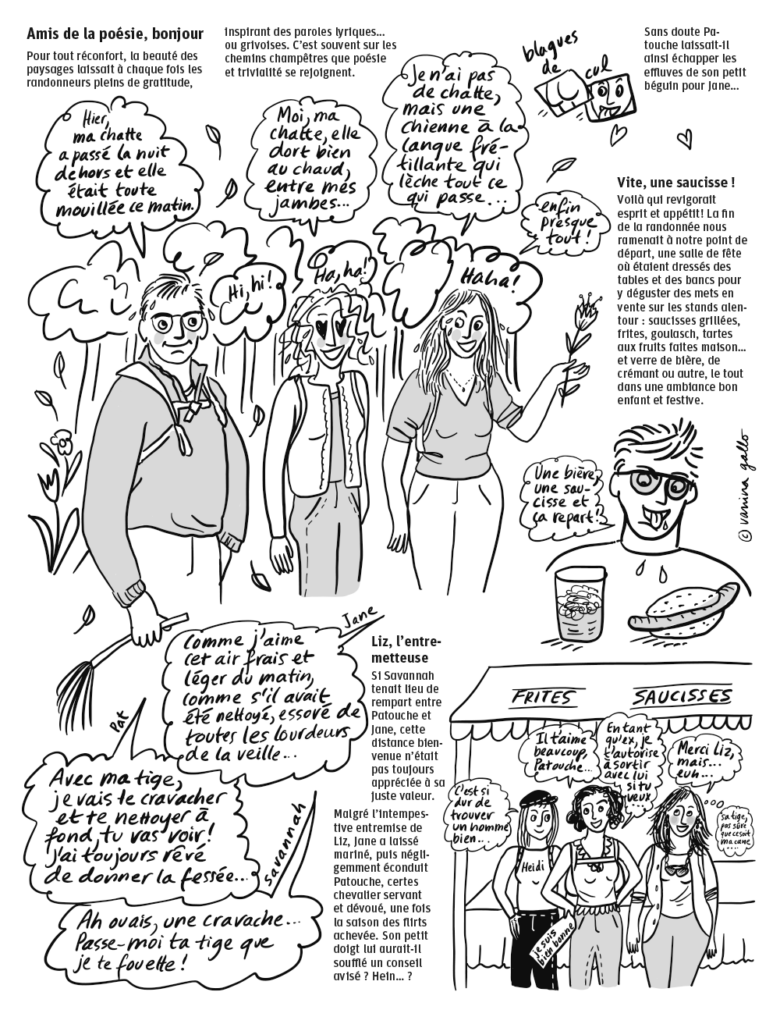 Amis de la poésie, bonjour
Pour tout réconfort, la beauté des
paysages laissait à chaque fois les
randonneurs pleins de gratitude,
inspirant des paroles lyriques...
ou grivoises. C'est souvent sur les
chemins champêtres que poésie
et trivialité se rejoignent.
blagues
de
cul
Sans doute Pa-
touche laissait-il
ainsi échapper les
effluves de son petit
béguin pour Jane...
Hier,
ma chatte
a passé la nuit
dehors et elle
était toute
mouillée ce matin.
Moi, ma
chatte, elle
dort bien
au chaud,
entre mes
jambes...
Je n'ai pas
de chatte,
mais une
chienne à la
langue fré-
tillante qui
lèche tout ce
qui passe...
enfin
presque
tout !
Hi, hi !
Ha, ha !
Haha !
Vite, une saucisse !
Voilà qui revigorait
esprit et appétit! La fin
de la randonnée nous
ramenait à notre point de
départ, une salle de fête
où étaient dressés des
tables et des bancs pour
y déguster des mets en
vente sur les stands alen-
tour : saucisses grillées,
frites, goulasch, tartes
aux fruits faites maison...
et verre de bière, de
crémant ou autre, le tout
dans une ambiance bon
enfant et festive.
Une bière,
une sau-
cisse et
ça repart !
© vanina gallo
Jane
Comme j'aime
cet air frais et
léger du matin,
comme s'il avait
été nettoyé, essoré de
toutes les lourdeurs
de la veille...
Pat
Avec ma tige,
je vais te cravacher
et te nettoyer à
fond, tu vas voir !
J'ai toujours rêvé
de donner la fessée...
Savannah
Ah ouais, une cravache...
Passe-moi ta tige que
je te fouette !
Liz, l'entre-
metteuse
Si Savannah
tenait lieu de
rempart entre
Patouche et
Jane, cette
distance bien-
venue n'était
pas toujours
appréciée à sa
juste valeur.
Malgré l'intempes-
tive entremise de
Liz, Jane a laissé
mariné, puis négli-
gemment éconduit
Patouche, certes
chevalier servant
et dévoué, une fois
la saison des flirts
achevée. Son petit
doigt lui aurait-il
soufflé un conseil
avisé ? Hein... ?
FRITES
SAUCISSES
C'est si
dur de
trouver
un homme
bien...
Il t'aime
beaucoup,
Patouche...
En tant
qu'ex, je
t'autorise
à sortir
avec lui
si tu
veux...
Merci Liz,
mais...
euh...
Sa tige,
pas sûre
que ce soit
ma came
...
Heidi
je suis
bien bonne